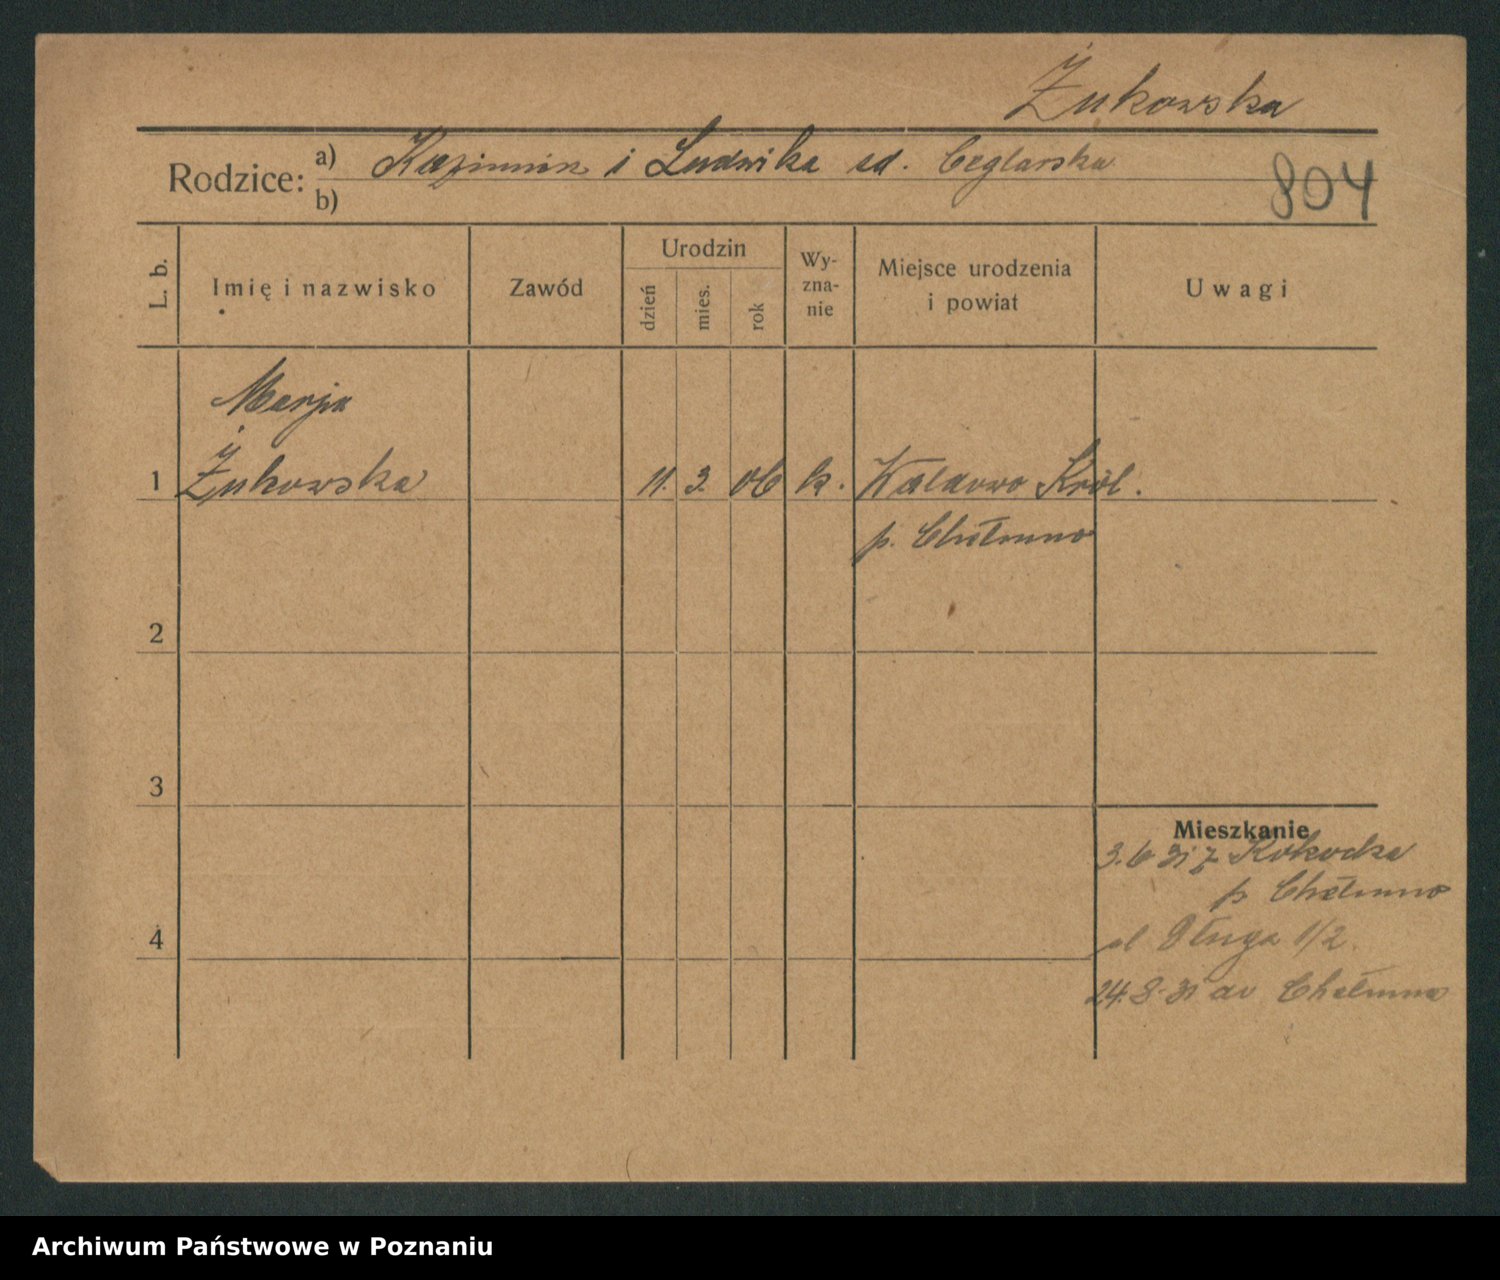 Żukowska
Rodzice: a) Kazimierz i Ludwika zd. Ceglarska
b)
804
L. b.
Imię i nazwisko
Zawód
Urodzin
dzień
mies.
rok
Wy-
zna-
nie
Miejsce urodzenia
i powiat
Uwagi
Marja
1 Żukowska 11. 3. 06 k. Wałdowo Król.
p. Chełmno
2
3
Mieszkanie
3.6 31 z Kokocka
p Chełmno
4
ul Długa 1/2.
24.8.31 do Chełmna
Archiwum Państwowe w Poznaniu